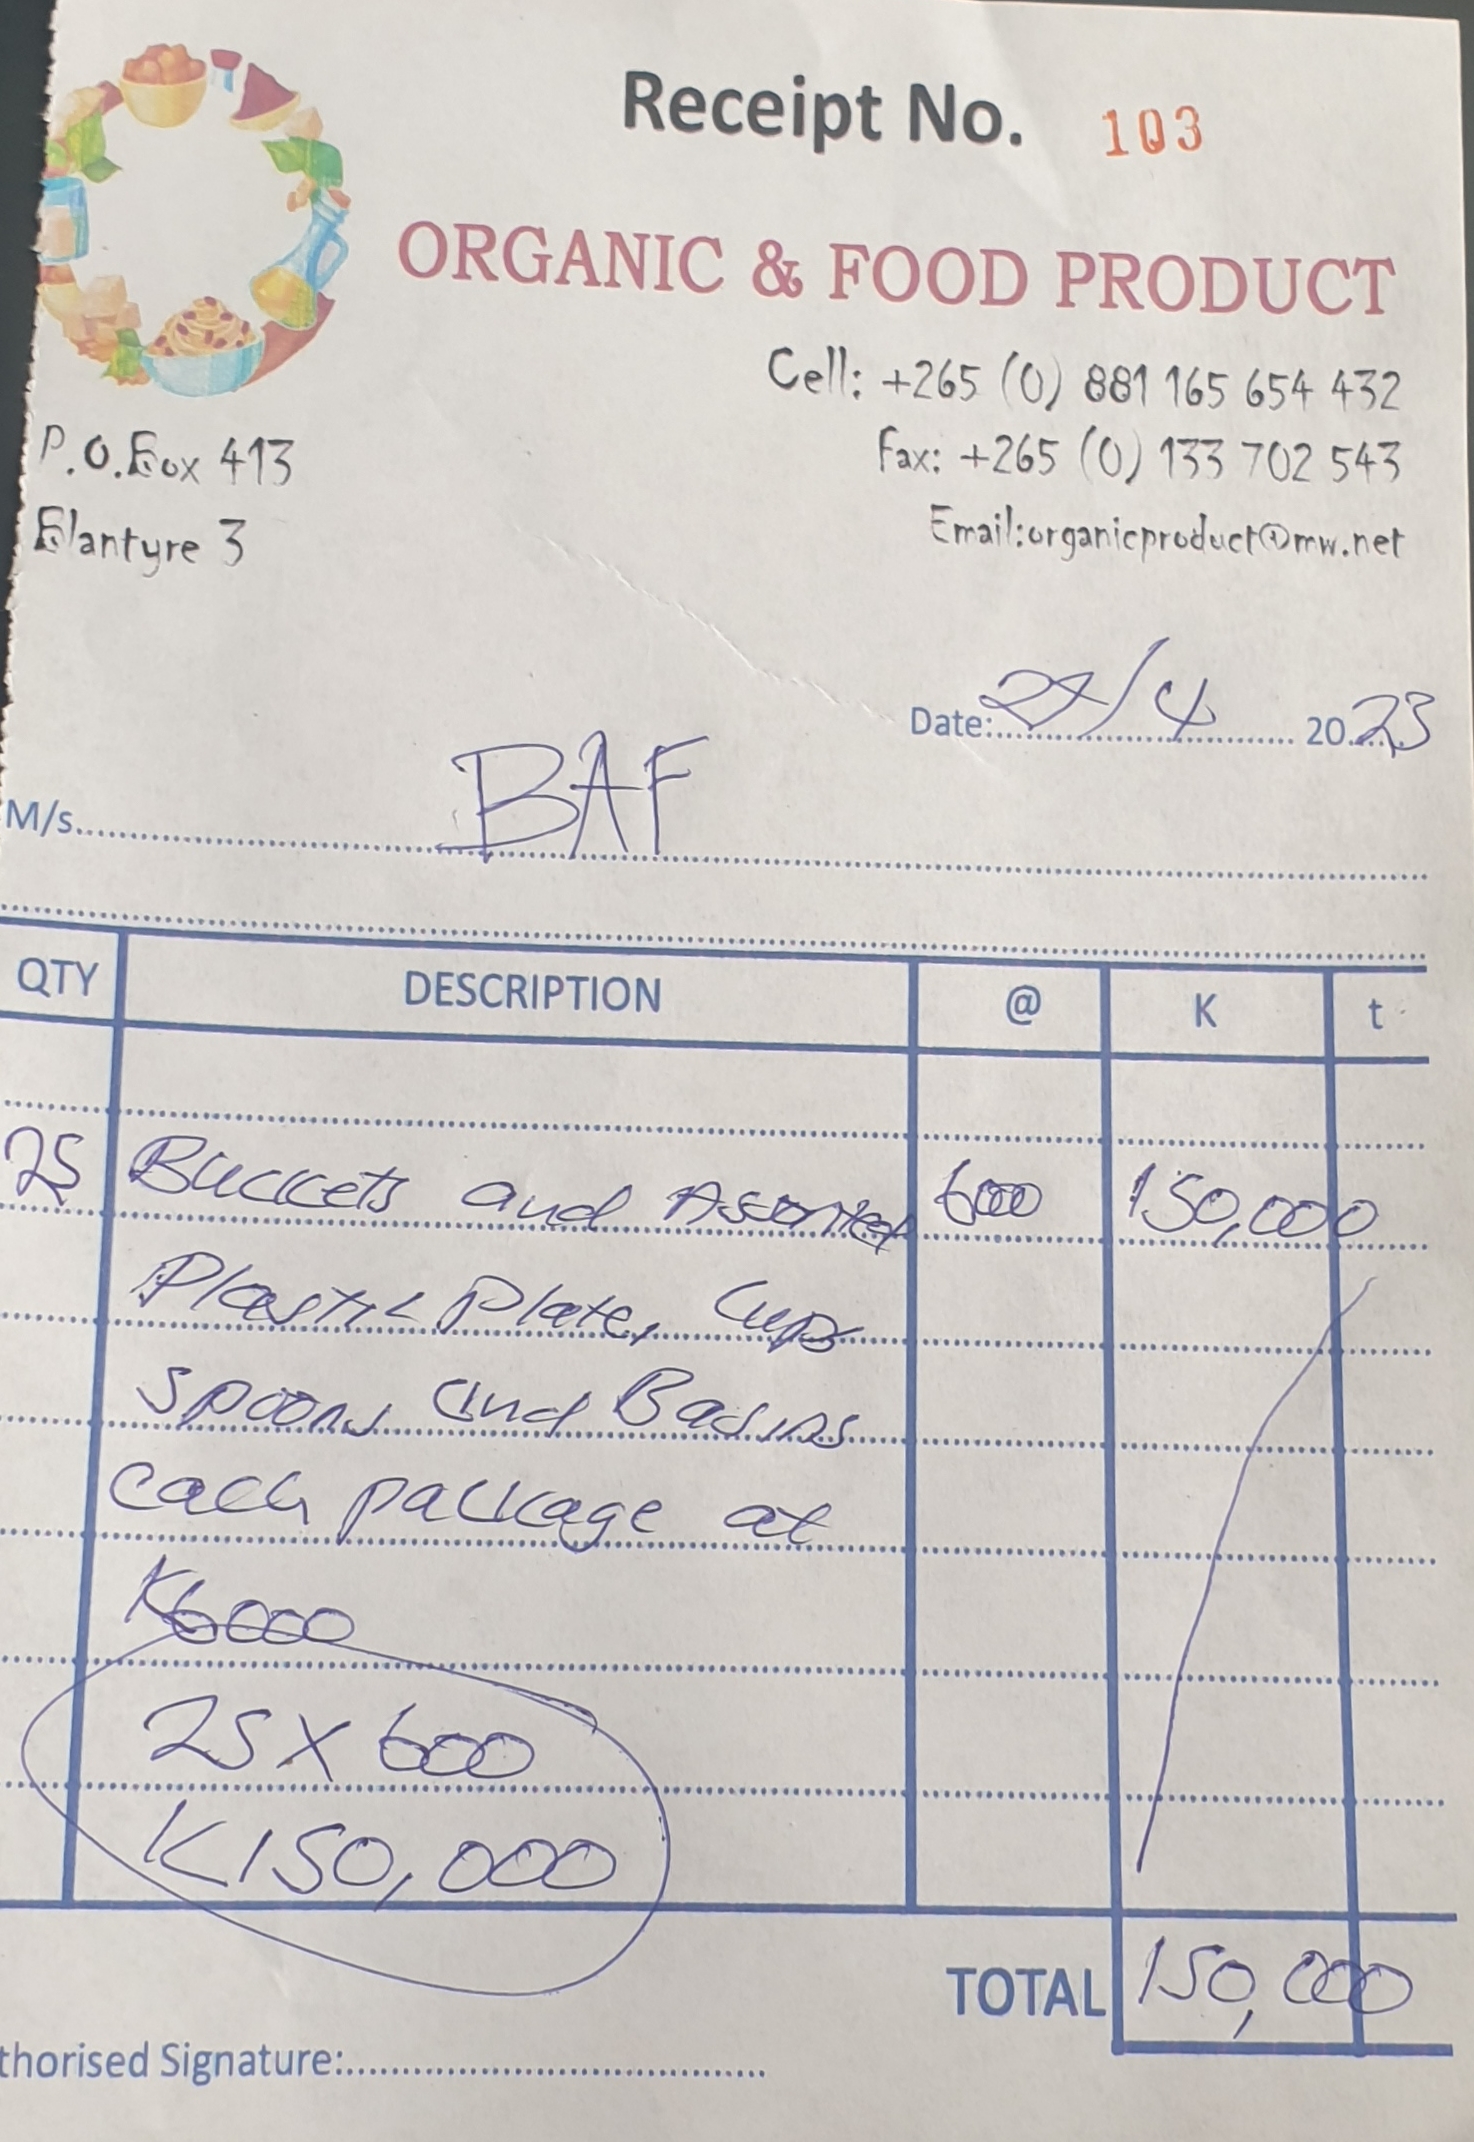 Receipt No. 103
ORGANIC & FOOD PRODUCT
Cell: +265 (0) 881 165 654 432
Fax: +265 (0) 133 702 543
Email:organicproduct@mw.net
P.O.Box 413
Blantyre 3
Date: 27/4 2023
M/s BAF
QTY DESCRIPTION @ K t
25 Buckets and Assorted 600 150,000
Plastic Plate, Cups
Spoons and Basins
each package at
K6000
25 X 600
K150,000
TOTAL 150,000
thorised Signature: